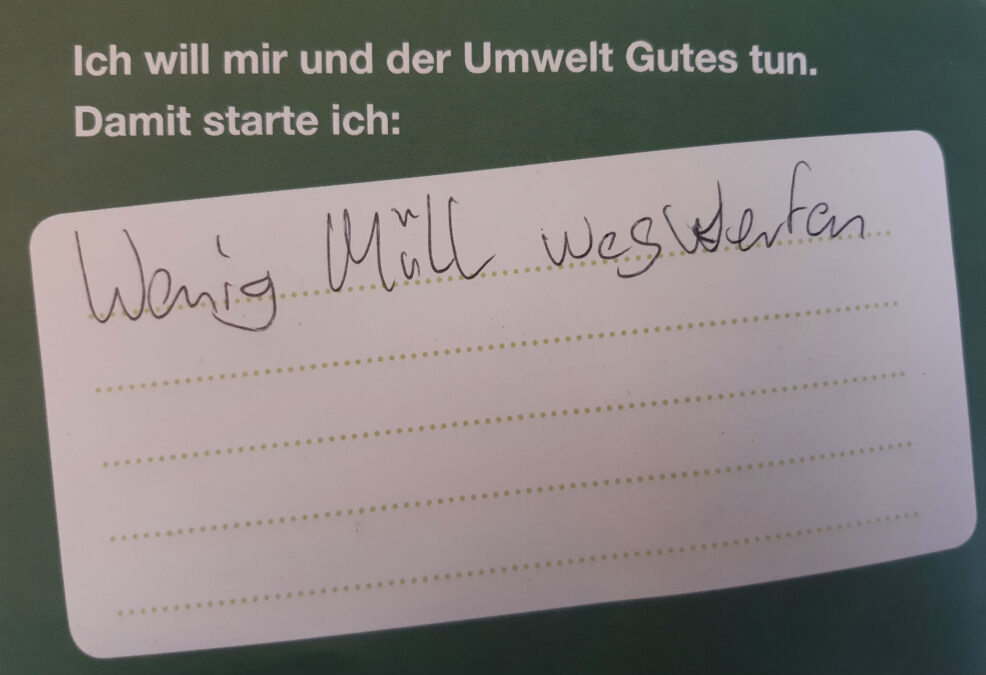 Ich will mir und der Umwelt Gutes tun.
Damit starte ich:
Wenig Müll wegwerfen